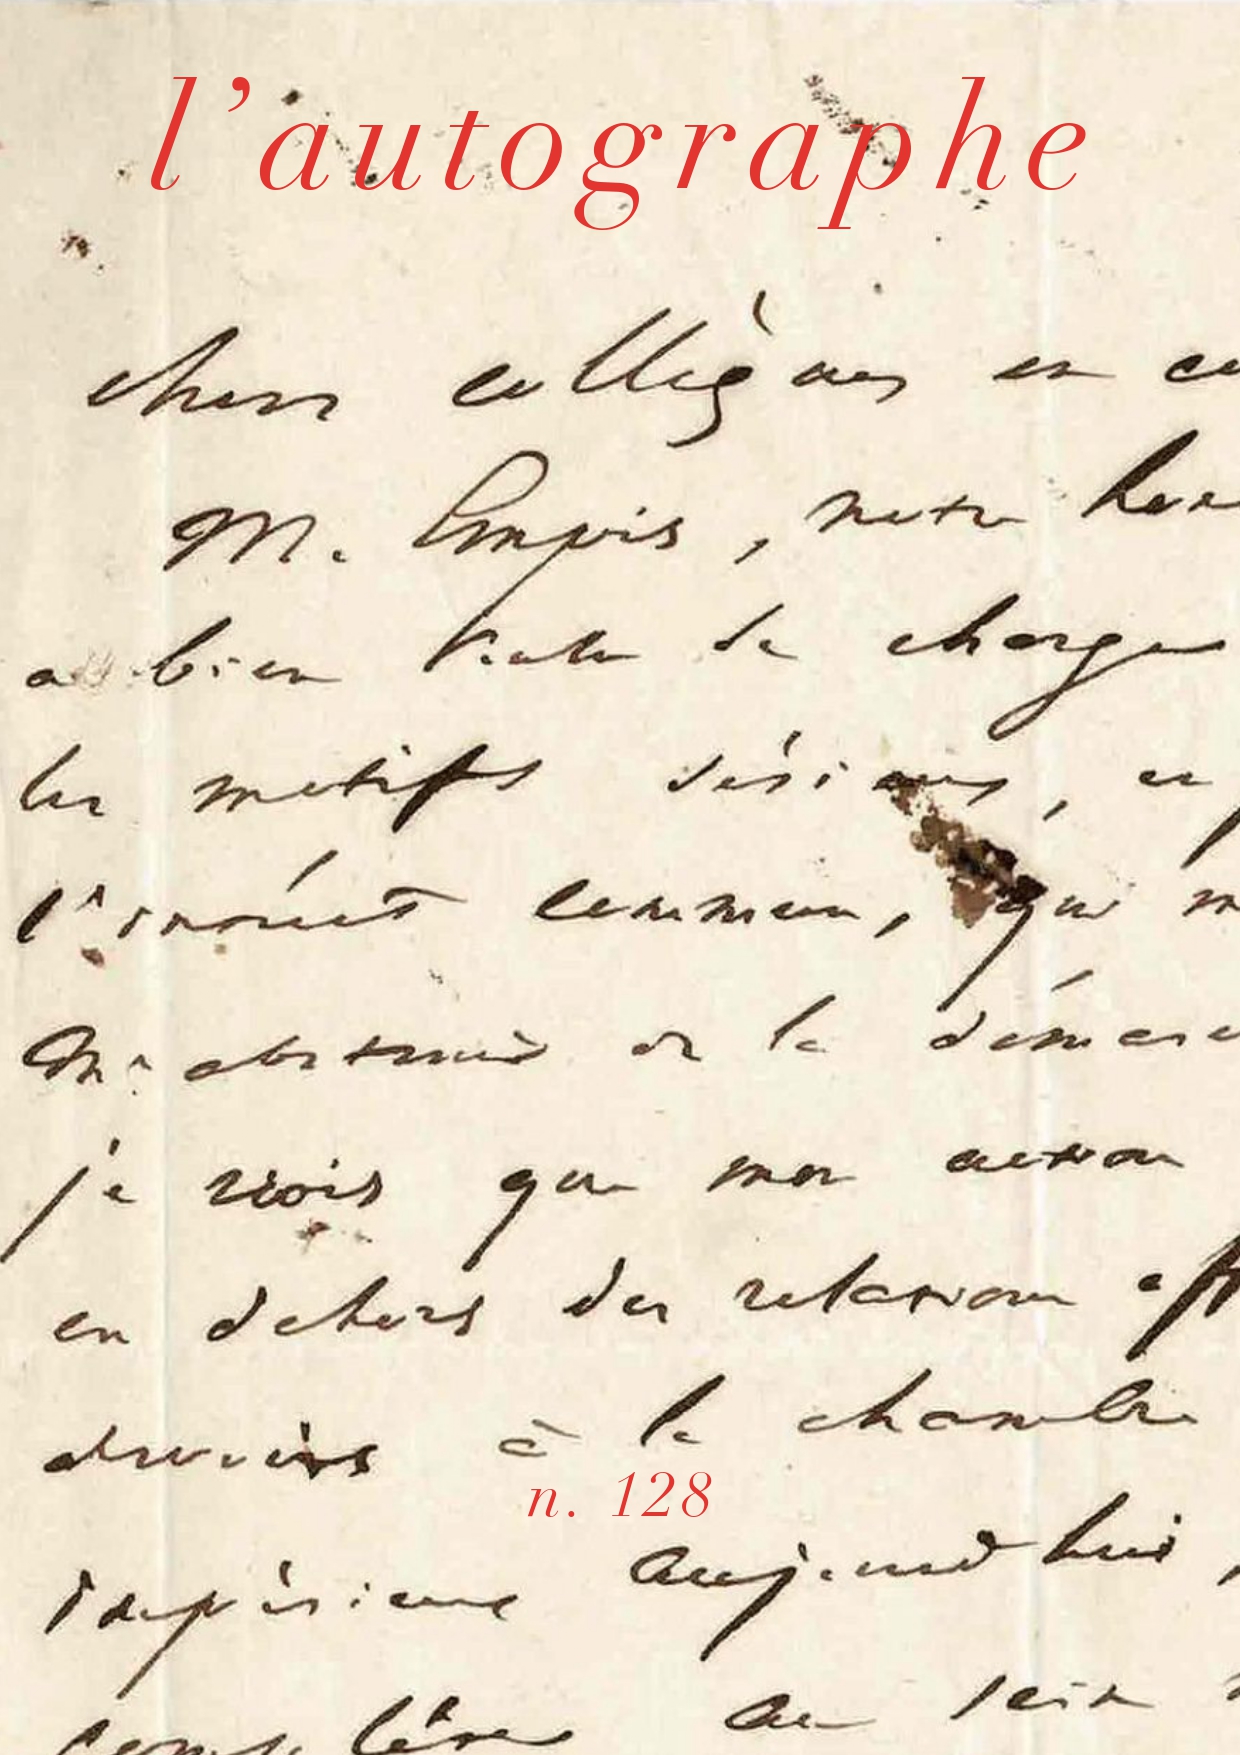 l'autographe
chers collègues en
M. Empis, notre
a bien voulu se charger
les motifs sérieux, et
l'intérêt commun, qui
M'abstenir de la
je crois que mon action
en dehors des relations
devoirs à la chambre
n. 128
impérieux aujourd'hui,
complète au sein